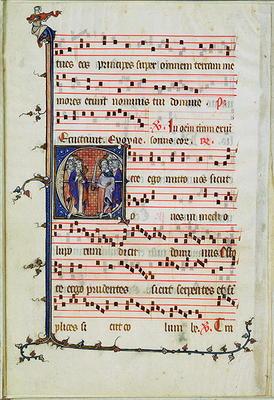 tues eos principes super omnem terram me
mores erunt nominis tui domine. Ps.
V. In omnem terram exivi
Eructavit. Evovae. sonus eor. R.
cce ego mitto vos sicut
o ves in medio
lupo rum dicit domi nus Esto
te ergo prudentes sicut serpentes et si
plices si cut co lum be. V. Dum